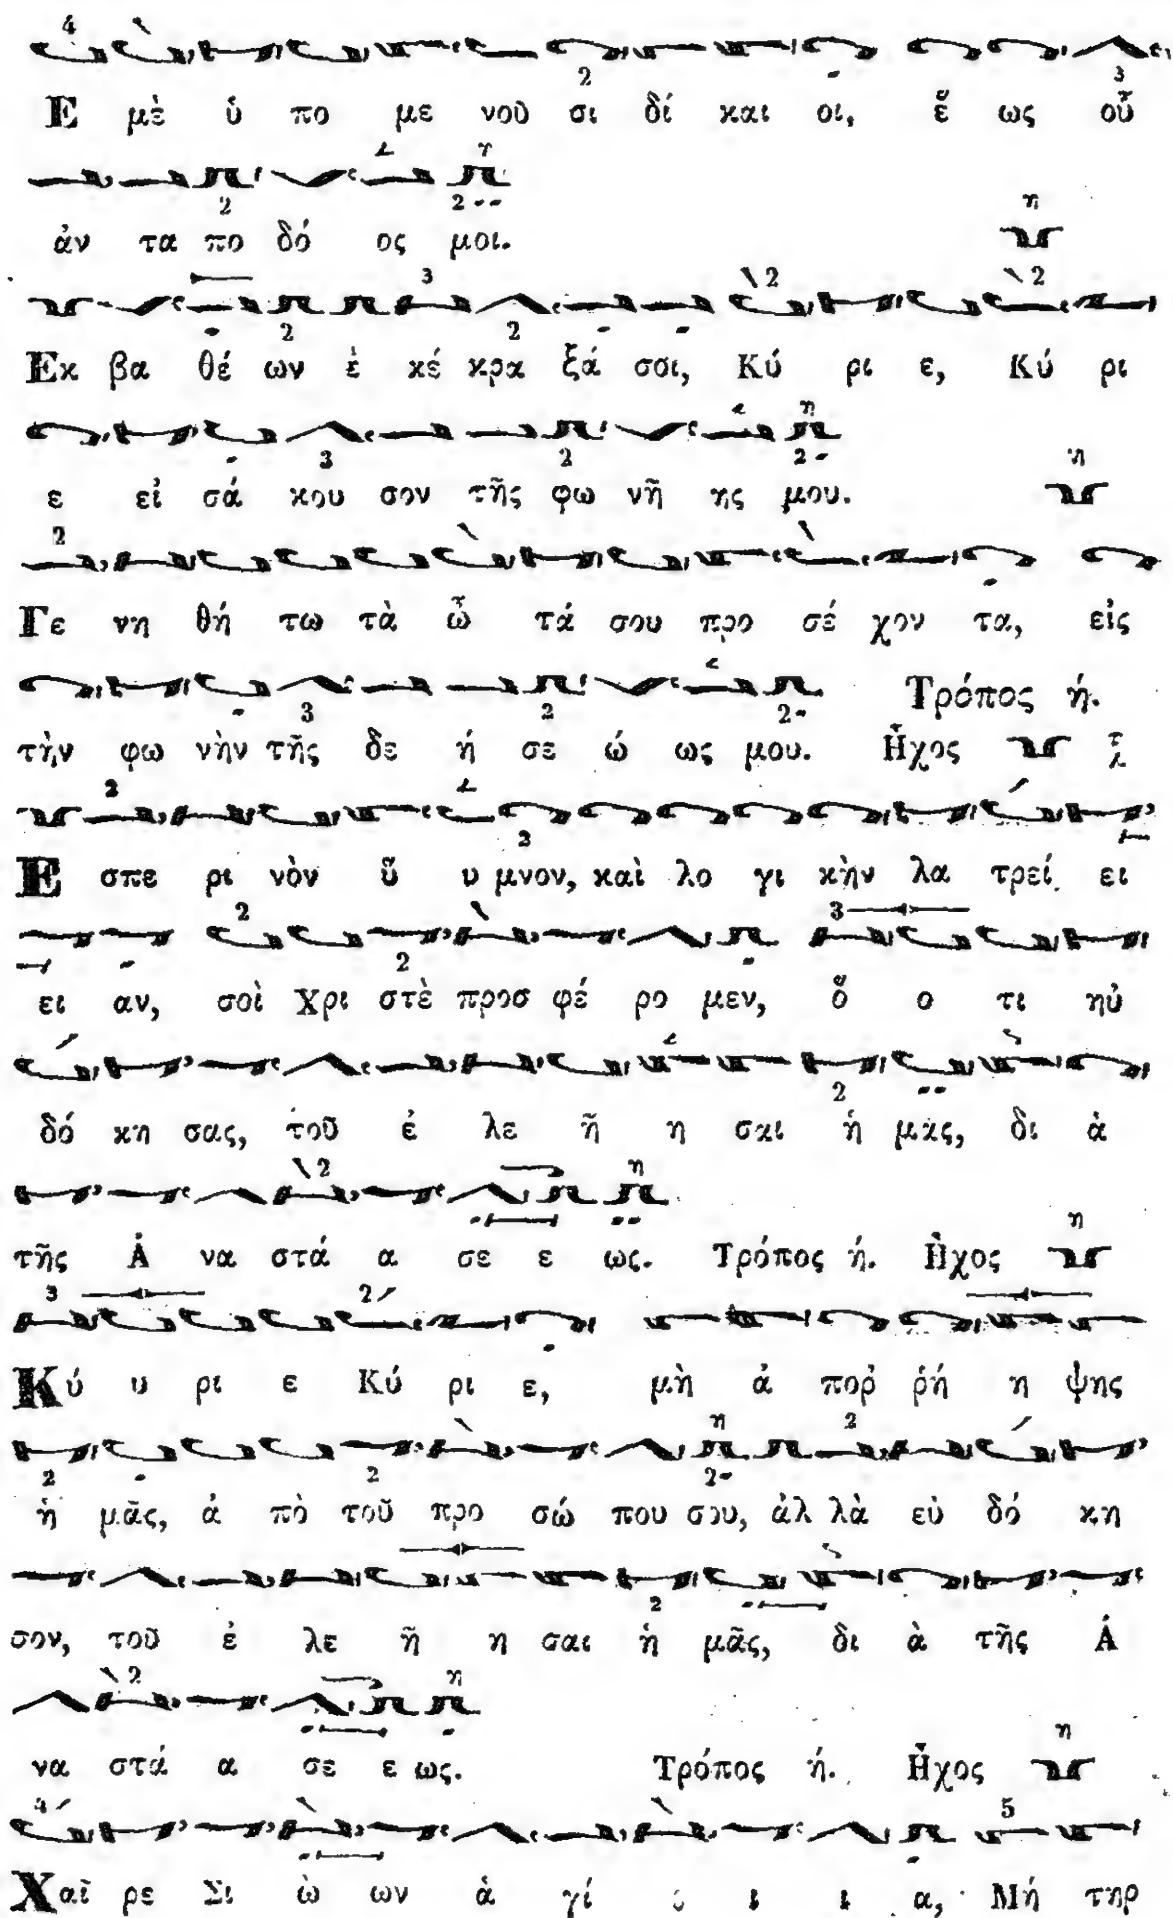 Ε μὲ ὑ πο με νοῦ σι δί και οι, ἕ ως οὗ
ἀν τα πο δό ος μοι.
Εκ βα θέ ων ἐ κέ κρα ξά σοι, Κύ ρι ε, Κύ ρι
ε εἰ σά κου σον τῆς φω νῆ ης μου.
Γε νη θή τω τὰ ὦ τά σου προ σέ χον τα, εἰς
τὴν φω νὴν τῆς δε ή σε ώ ως μου. Τρόπος ή. Ἦχος
Ε σπε ρι νὸν ὕ υ μνον, καὶ λο γι κὴν λα τρεί ει
ει αν, σοὶ Χρι στὲ προσ φέ ρο μεν, ὅ ο τι ηὐ
δό κη σας, τοῦ ἐ λε ῆ η σαι ἡ μᾶς, δι ὰ
τῆς Ἀ να στά α σε ε ως. Τρόπος ή. Ἦχος
Κύ υ ρι ε Κύ ρι ε, μὴ ἀ πορ ρή η ψης
ἡ μᾶς, ἀ πὸ τοῦ προ σώ που σου, ἀλ λὰ εὐ δό κη
σον, τοῦ ἐ λε ῆ η σαι ἡ μᾶς, δι ὰ τῆς Ἀ
να στά α σε ε ως. Τρόπος ή. Ἦχος
Χαῖ ρε Σι ὼ ων ἁ γί ι ι α, Μή τηρ